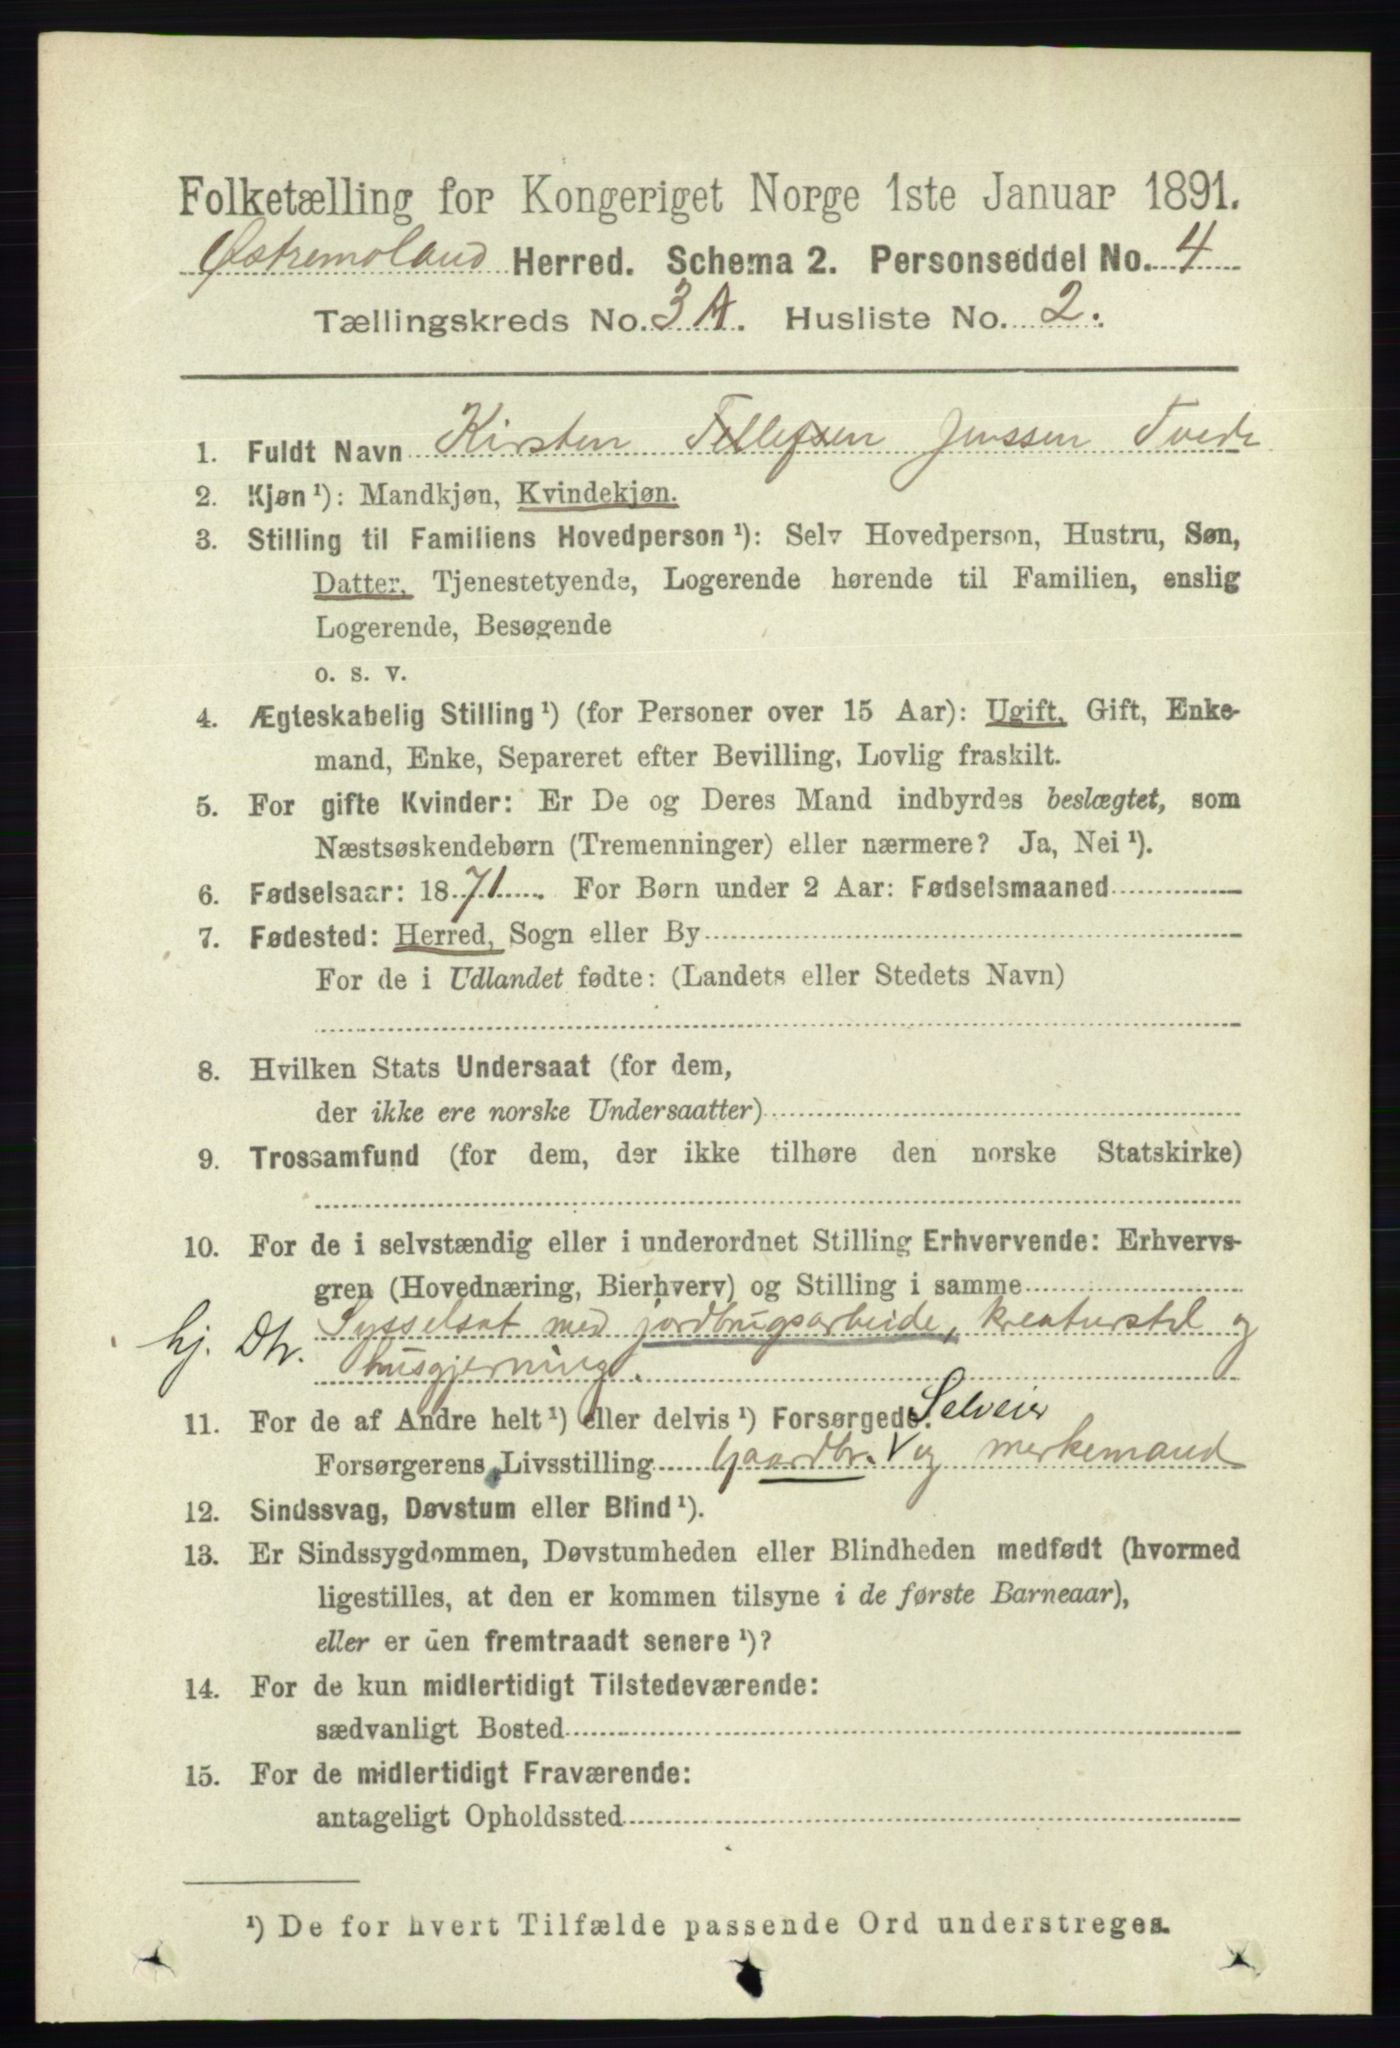 Folketælling for Kongeriget Norge 1ste Januar 1891.
Østremoland Herred. Schema 2. Personseddel No. 4
Tællingskreds No. 3A. Husliste No. 2.
1. Fuldt Navn Kirsten Tellefsen Jenssen Tvede
2. Kjøn ¹): Mandkjøn, Kvindekjøn.
3. Stilling til Familiens Hovedperson ¹): Selv Hovedperson, Hustru, Søn,
Datter, Tjenestetyende, Logerende hørende til Familien, enslig
Logerende, Besøgende
o. s. v.
4. Ægteskabelig Stilling ¹) (for Personer over 15 Aar): Ugift, Gift, Enke-
mand, Enke, Separeret efter Bevilling, Lovlig fraskilt.
5. For gifte Kvinder: Er De og Deres Mand indbyrdes beslægtet, som
Næstsøskendebørn (Tremenninger) eller nærmere? Ja, Nei ¹).
6. Fødselsaar: 1871. For Børn under 2 Aar: Fødselsmaaned
7. Fødested: Herred, Sogn eller By
For de i Udlandet fødte: (Landets eller Stedets Navn)
8. Hvilken Stats Undersaat (for dem,
der ikke ere norske Undersaatter)
9. Trossamfund (for dem, der ikke tilhøre den norske Statskirke)
10. For de i selvstændig eller i underordnet Stilling Erhvervende: Erhvervs-
gren (Hovednæring, Bierhverv) og Stilling i samme
Sysselsat med jordbrugsarbeide, kreaturstel og
hj. Dtr. husgjerning.
11. For de af Andre helt ¹) eller delvis ¹) Forsørgede: Selveier
Forsørgerens Livsstilling Gaardbr. V og merkemand
12. Sindssvag, Døvstum eller Blind ¹).
13. Er Sindssygdommen, Døvstumheden eller Blindheden medfødt (hvormed
ligestilles, at den er kommen tilsyne i de første Barneaar),
eller er den fremtraadt senere ¹)?
14. For de kun midlertidigt Tilstedeværende:
sædvanligt Bosted
15. For de midlertidigt Fraværende:
antageligt Opholdssted
¹) De for hvert Tilfælde passende Ord understreges.